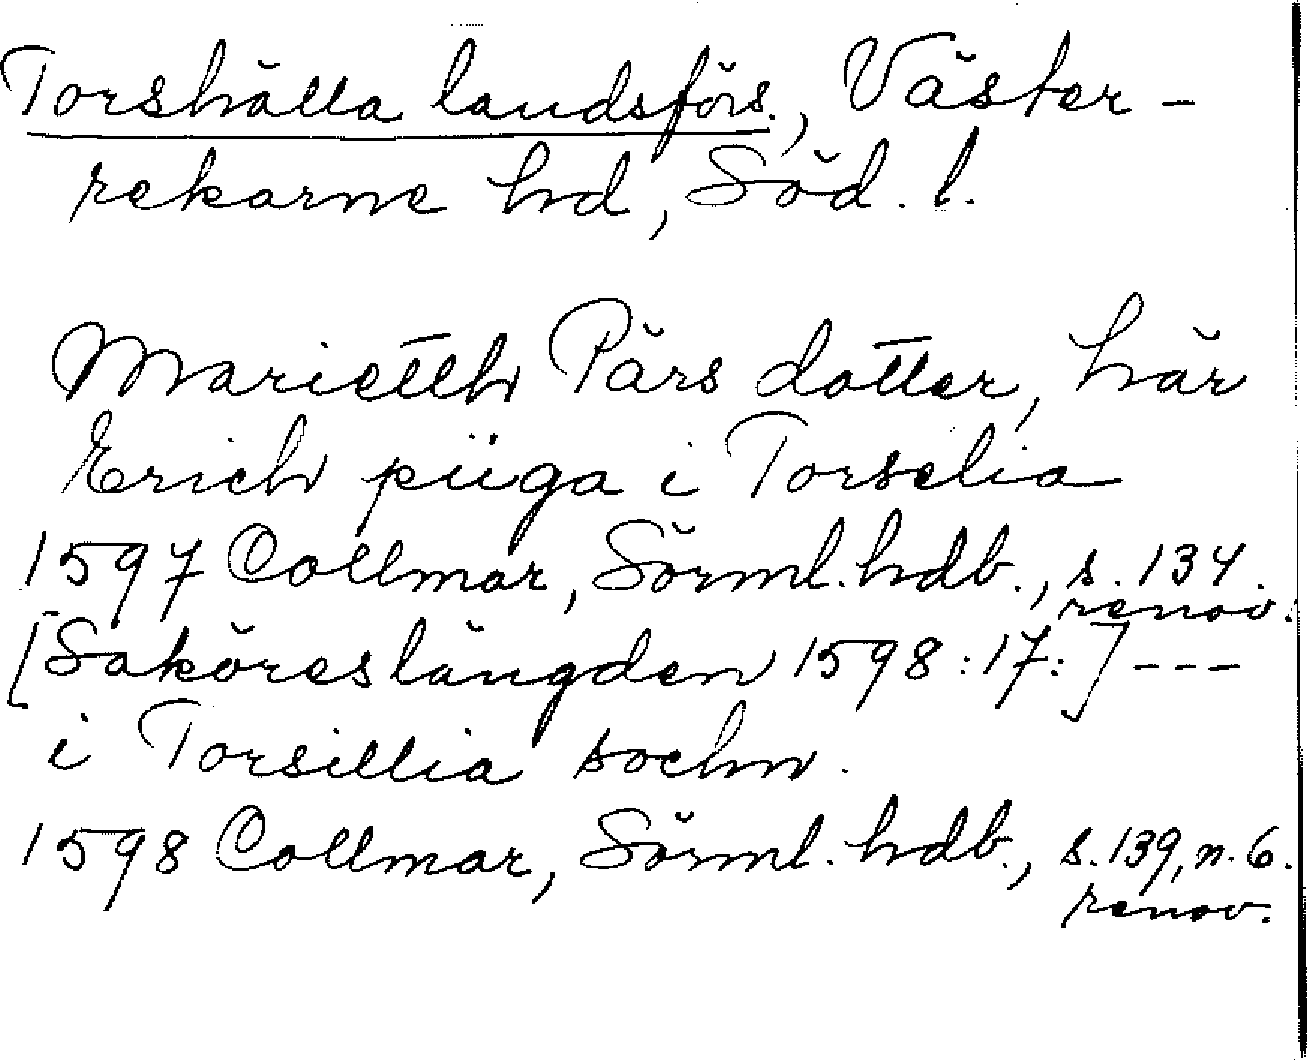 Torshälla landsförs., Väster-
rekarne hd, Söd. l.
Marietth Pärs dotter, här
Erich piiga i Torselia
1597 Collmar, Sörml. hdb., s. 134.
renov.
[Saköreslängden 1598:17:] ---
i Torsillia sochn.
1598 Collmar, Sörml. hdb., s. 139, n. 6.
renov.